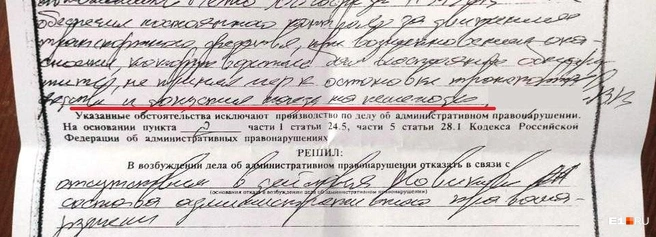 обеспечил постоянного контроля за движением
транспортного средства, при возникновении опа-
сности, которую водитель был в состоянии обнару-
жить, не принял мер к остановке транспортн
средства и допустил наезд на пешехода.
Указанные обстоятельства исключают производство по делу об административном правонарушении.
На основании пункта 2 части 1 статьи 24.5, части 5 статьи 28.1 Кодекса Российской
Федерации об административных правонарушениях
РЕШИЛ:
В возбуждении дела об административном правонарушении отказать в связи с
отсутствием в действиях
(основания отказа в возбуждении дела об административном правонарушении)
состава административного правона-
рушения
E1.RU